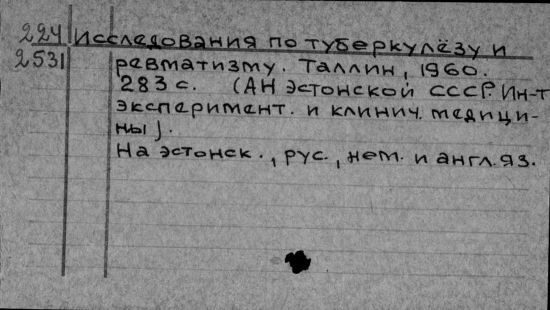 224 Исследования по туберкулёзу и
2531 ревматизму. Таллин, 1960.
283 с. (АН Эстонской ССР. Ин-т
эксперимент. и клинич. медици-
ны).
На эстонск., рус., нем. и англ. яз.